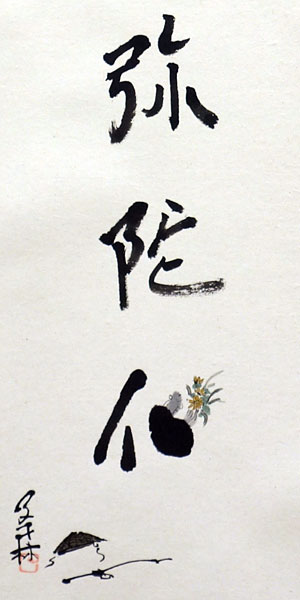 弥陀仏